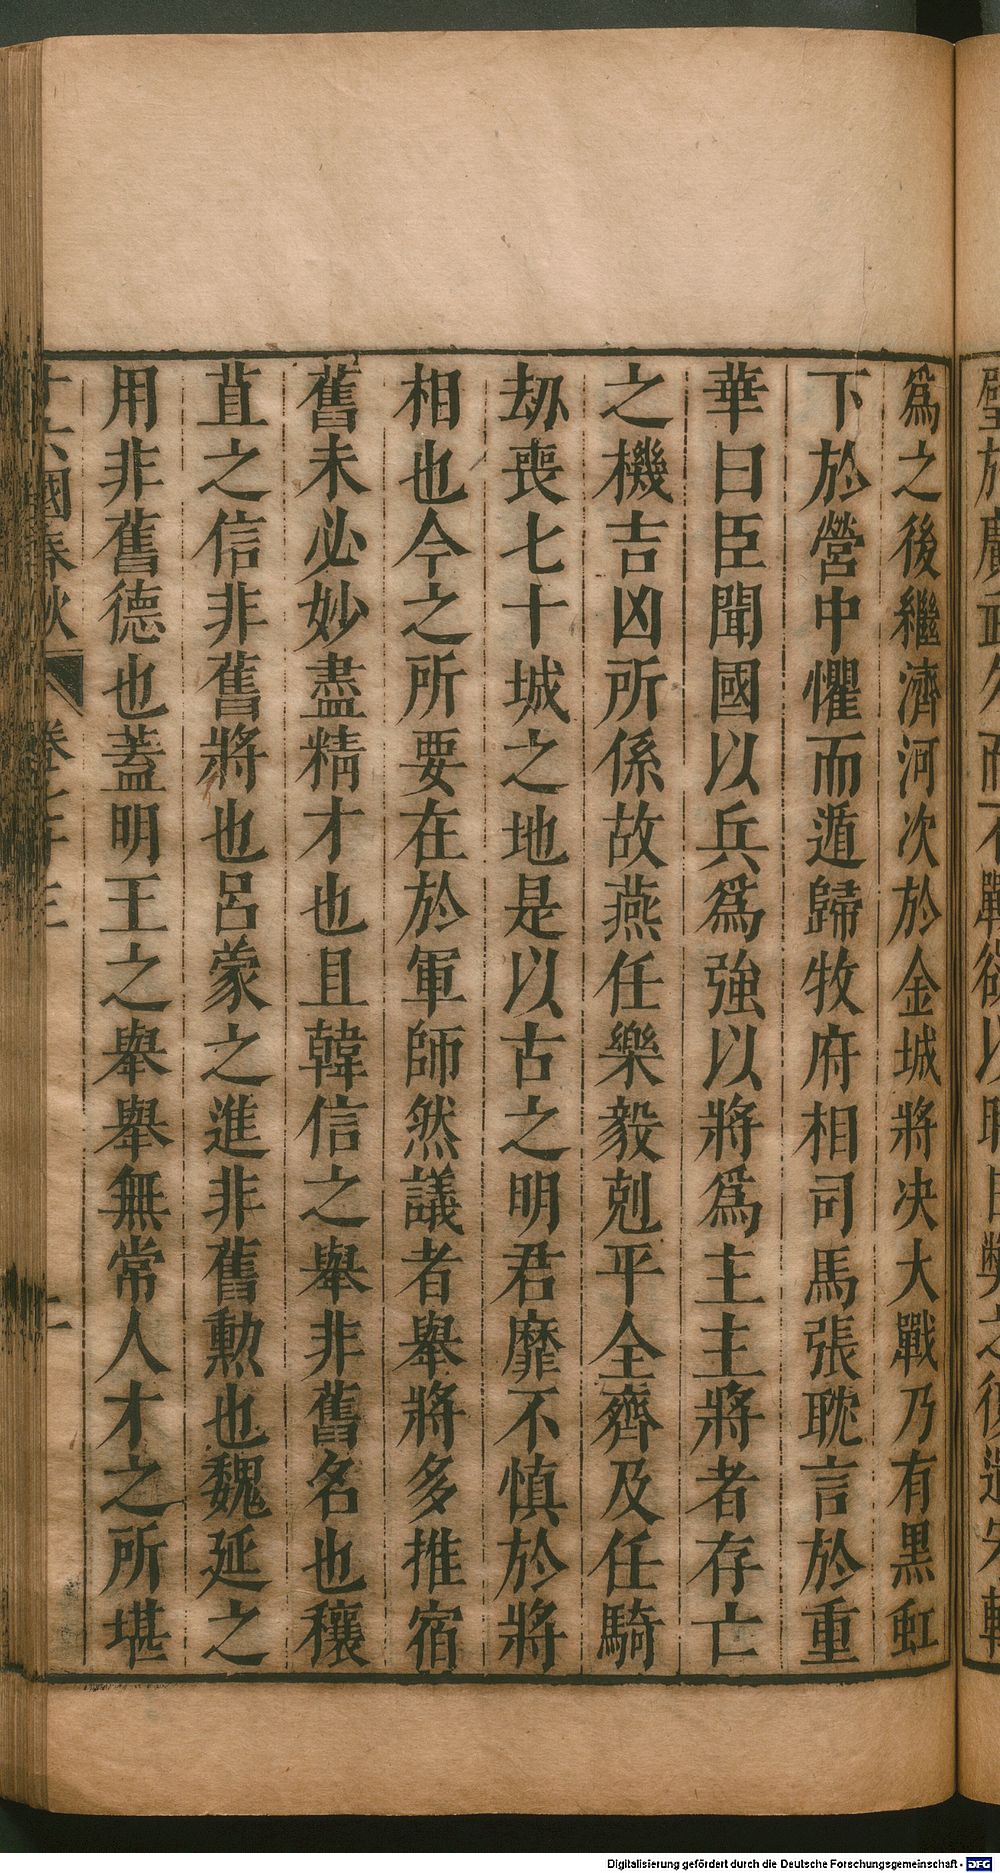 爲之後繼濟河次於金城將决大戰乃有黒虹
下於營中懼而遁歸牧府相司馬張耽言於重
華曰臣聞國以兵爲強以將爲主主將者存亡
之機吉凶所係故燕任樂毅剋平全齊及任騎
劫喪七十城之地是以古之明君靡不慎於將
相也今之所要在於軍師然議者舉將多推宿
舊未必妙盡精才也且韓信之舉非舊名也穰
苴之信非舊將也呂蒙之進非舊勲也魏延之
用非舊德也蓋明王之舉舉無常人才之所堪
十六國春秋 卷七十三 十
Digitalisierung gefördert durch die Deutsche Forschungsgemeinschaft - DFG